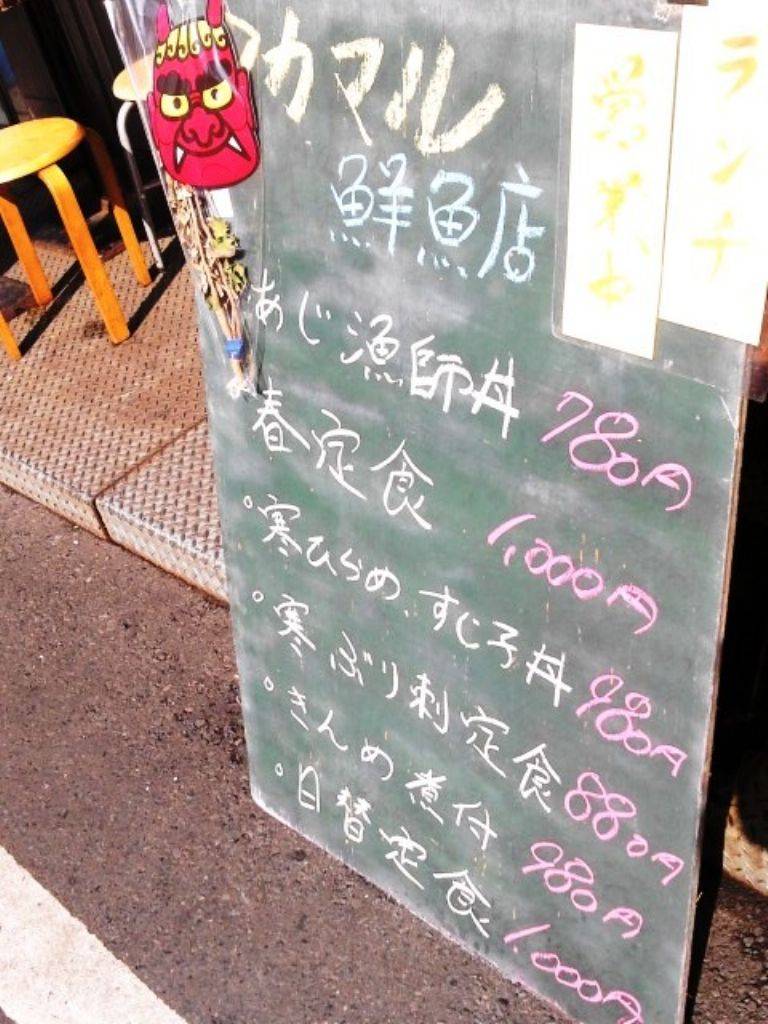 カマル
鮮魚店
ランチ
営業中
あじ漁師丼 780円
春定食 1,000円
寒ひらめ、すじ子丼 980円
寒ぶり刺定食 880円
きんめ煮付 980円
日替定食 1,000円